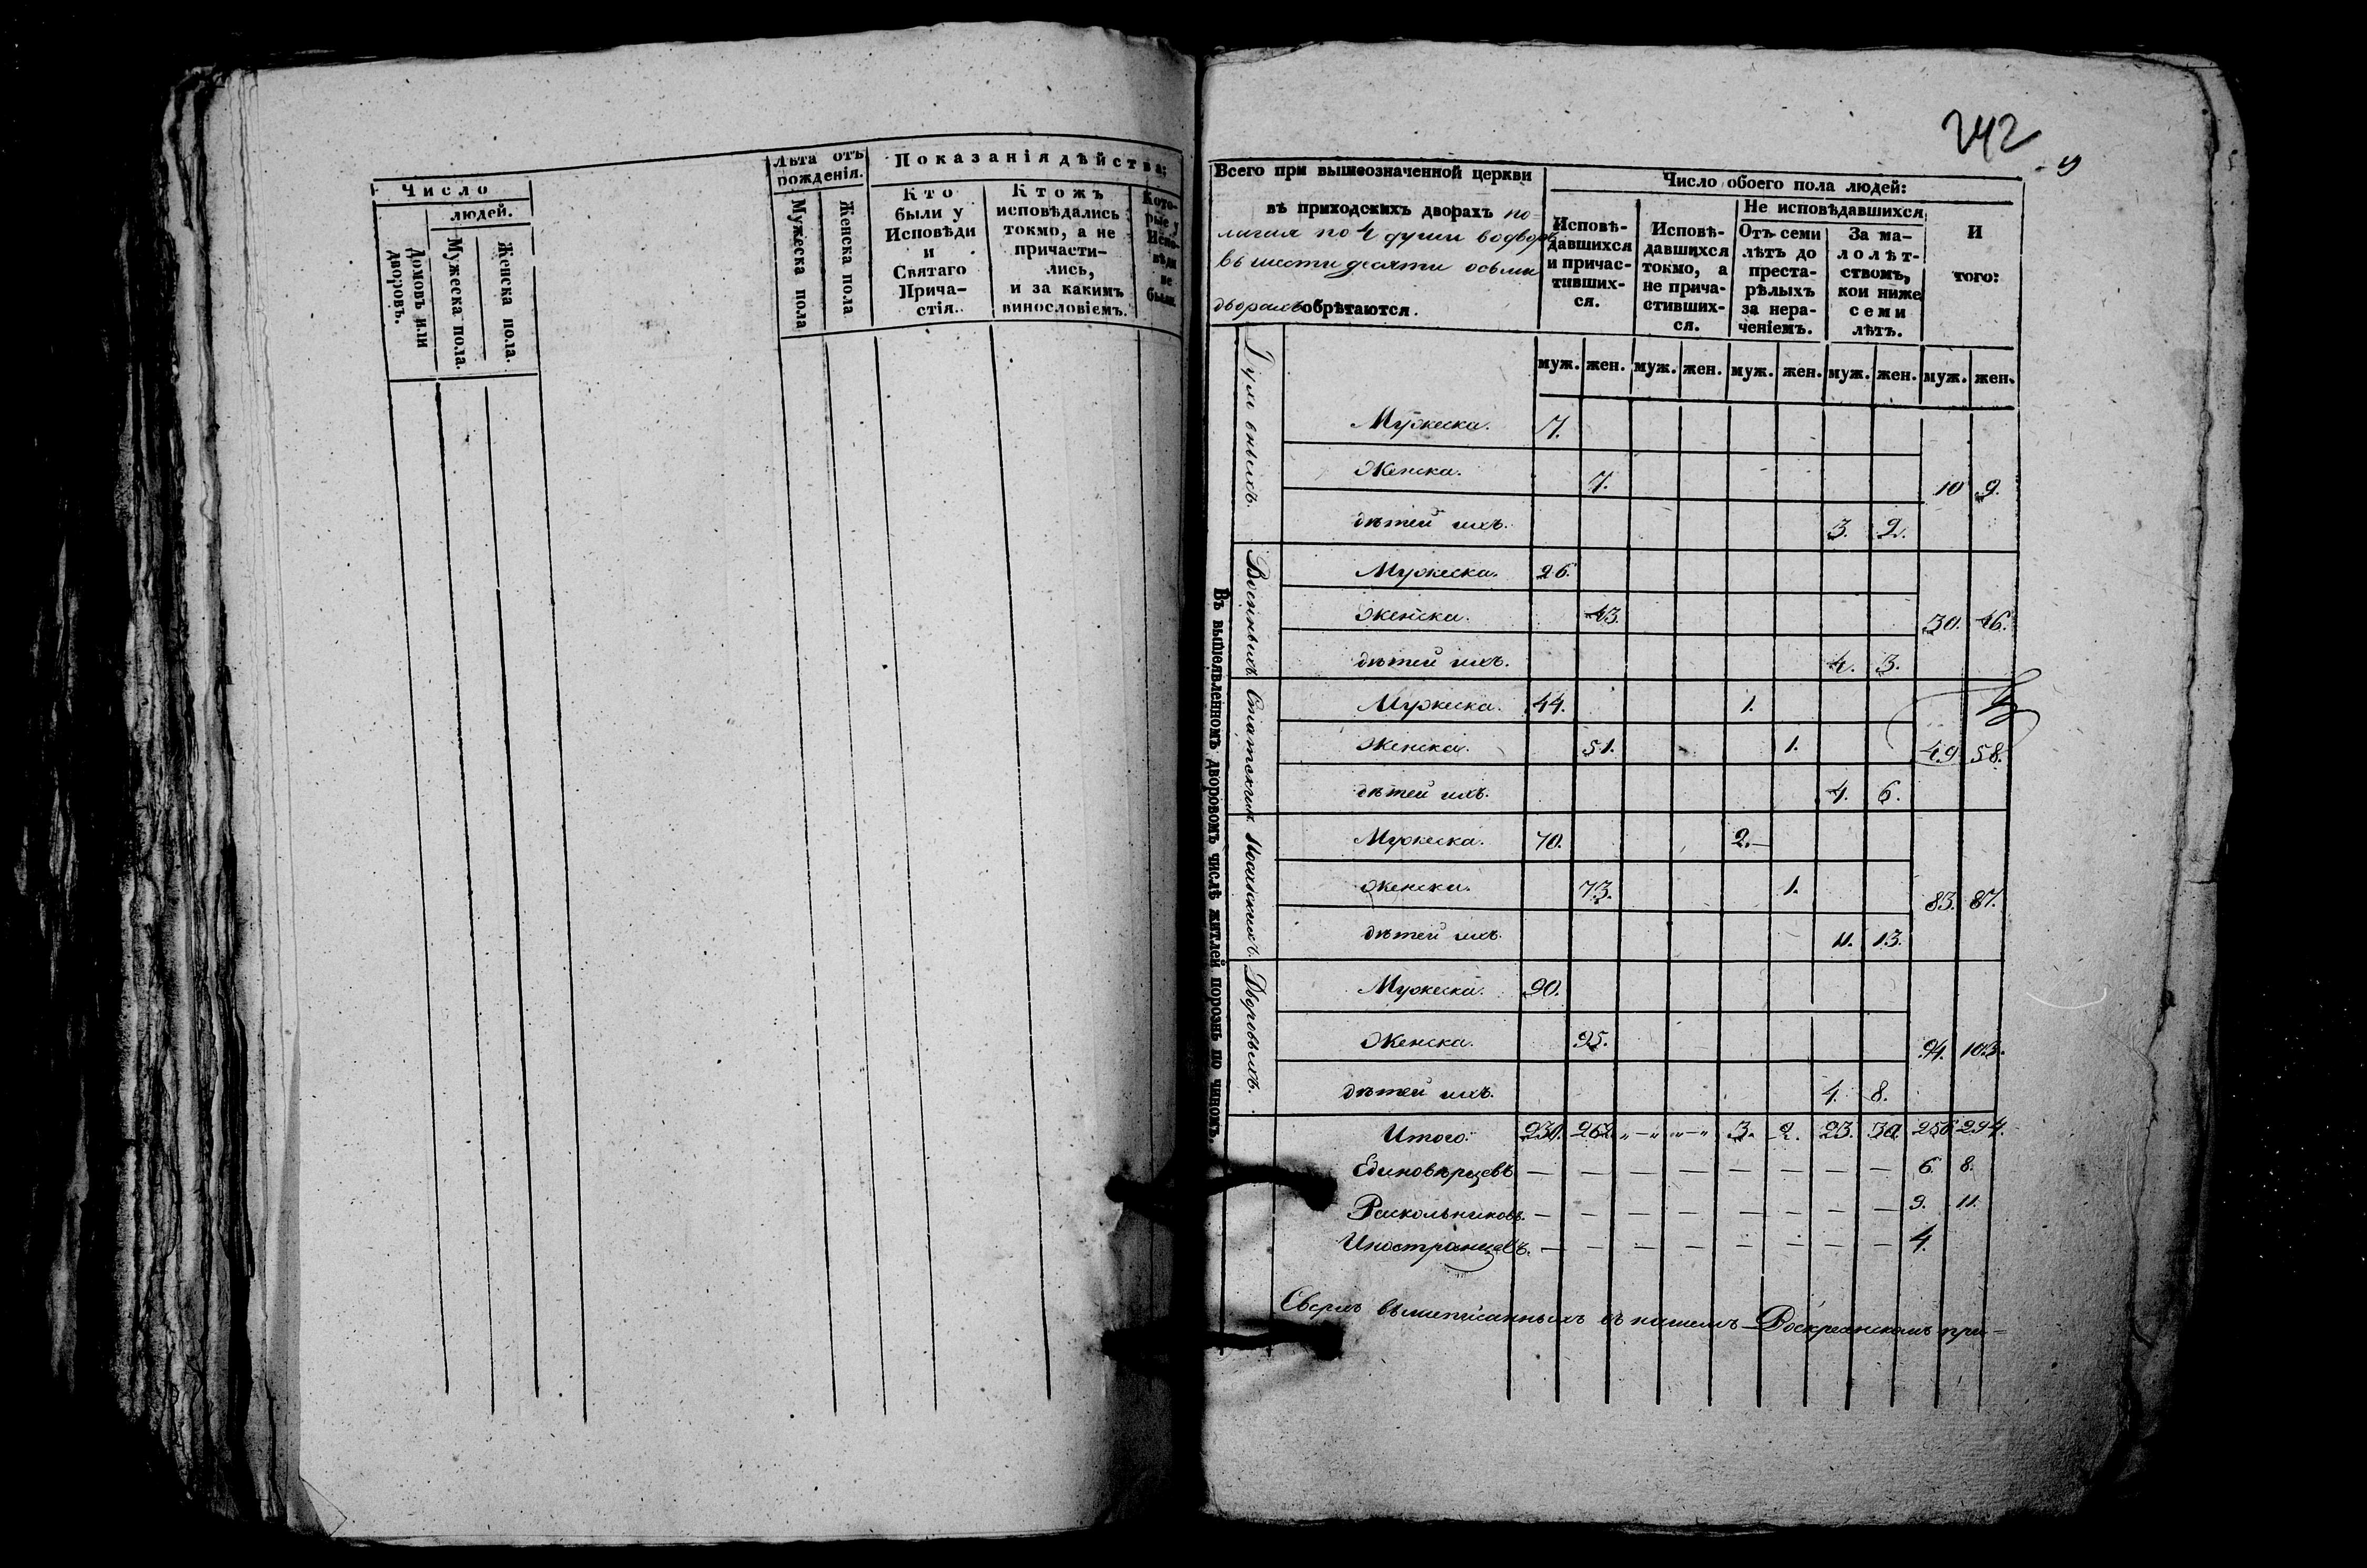 Число
людей.
Домовъ или
дворовъ.
Мужеска пола.
Женска пола.
Лѣта отъ
рожденія.
Мужеска пола
Женска пола
Показанія дѣйства;
Кто
были у
Исповѣди
и
Святаго
Прича-
стія.
Ктожъ
исповѣдались
токмо, а не
причасти-
лись,
и за какимъ
винословіемъ.
Кото-
рые у
Испо-
вѣди
не
были.
242
Всего при вышеозначенной церкви
въ приходскихъ дворахъ по-
лагая по 4 души во дворѣ
въ шести десяти осьми
дворахъ обрѣтаются.
Число обоего пола людей:
Исповѣ-
давшихся
и причас-
тивших-
ся.
Исповѣ-
давшихся
токмо, а
не прича-
стивших-
ся.
Не исповѣдавшихся
Отъ семи
лѣтъ до
преста-
рѣлыхъ
за нера-
ченіемъ.
За ма-
лолѣт-
ствомъ,
кои ниже
семи
лѣтъ.
И
того:
муж. жен. муж. жен. муж. жен. муж. жен. муж. жен.
Въ вышеявленномъ дворовомъ числѣ житлей порознь по чиномъ
Духовныхъ
Мужеска. 7.
Женска. 7. 10 9.
дѣтей ихъ. 3. 2.
Военныхъ
Мужеска. 26.
Женска. 43. 30. 46.
дѣтей ихъ. 4. 3.
Статскихъ
Мужеска. 44. 1.
Женска. 51. 1. 49 58.
дѣтей ихъ. 4. 6.
Посадскихъ
Мужеска. 70. 2.
Женска. 73. 1. 83. 87.
дѣтей ихъ. 11. 13.
Дворовыхъ
Мужеска. 90.
Женска. 95. 94. 103.
дѣтей ихъ. 4. 8.
Итого. 230. 262. „—„ „—„ 3. 2. 23. 30. 256 294.
Единовѣрцевъ — — — — — — — — 6. 8.
Раскольниковъ. — — — — — — — — 9. 11.
Иностранцевъ. — — — — — — — — 4.
Сверхъ вышеписанныхъ въ нашемъ Воскресенскомъ при-